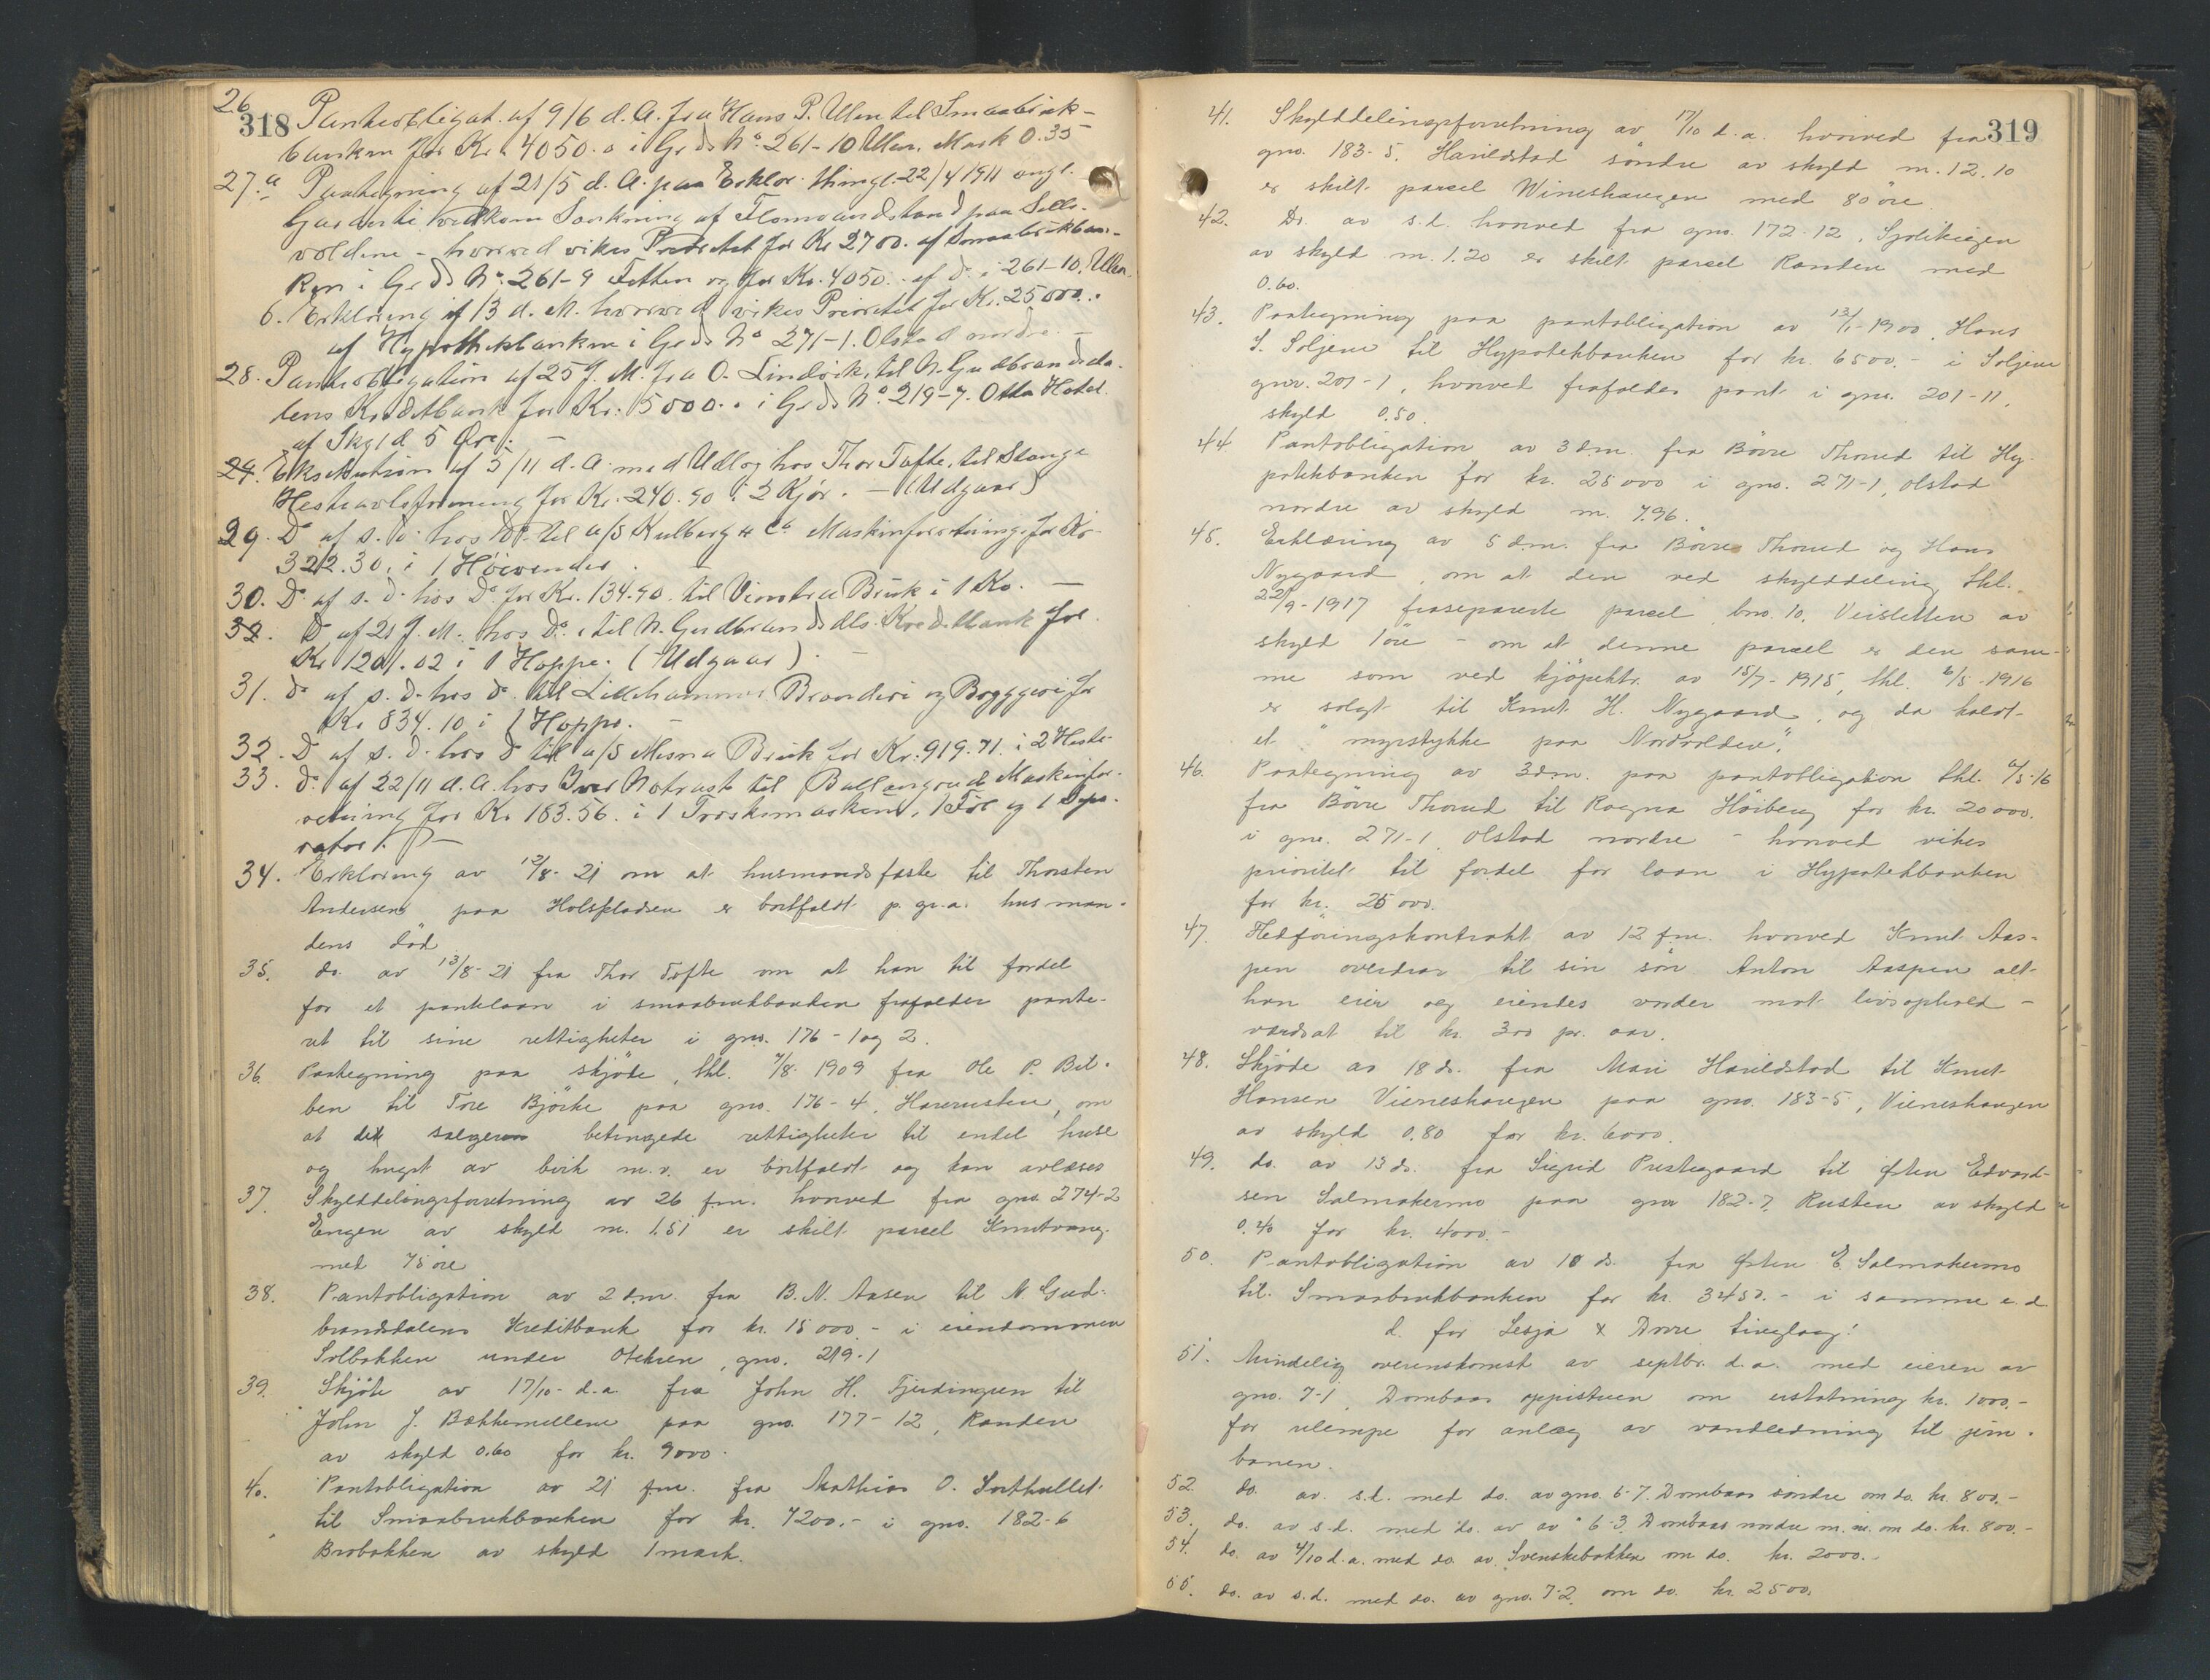 318
26 Panteobligat. af 9/6 d. A. fra Hans P. Ulen til Smaabruk-
banken for Kr. 4050.o i Gr ds No. 261-10 Ulen. Mark 0.35
27.a Paategning af 21/5 d. A. paa Erklær. thingl. 22/4 1911 angl.
vedkom Sænkning af Flomvandstand paa Sells-
voldene - hvorved vikes Prioritet for Kr 2700. af Smaabrukban-
ken i Gr ds No. 261-9 og for Kr. 4050.. af do. i 261-10. Ulen.
b. Erklæring af 13 d. M. hvorved vikes Prioritet for Kr. 25000..
af Hypothekbanken i Gr ds No 271-1. Olstad nordre. -
28. Panteobligation af 25 f. M. fra O. Lindvik, til N. Gudbrandsda-
lens Kreditbank for Kr. 15000.. i Gr ds No. 219-7. Otta Hotel.
af Skyld 5 Øre. -
29. Eksekution af 5/11 d. A. med Udlæg hos Thor Tofte, til Stange
Hesteavlsforening for Kr. 240.90 i 2 Kjør. - (Udgaar)
29. Do af s. D. hos Do. til a/s Kulberg & Co Maskinforretning, for Kr.
322.30. i 1 Høivender. -
30. Do. af s. d. hos Do. for Kr. 134.90. til Vinstra Bruk i 1 Ko. -
32. Do af 21 f. M. hos Do. til N. Gudbrandsdls. Kreditbank for
Kr 1201.02 i 1 Hoppe. (Udgaar). -
31. do af s. d. hos do. til Lillehammer Brænderi og Bryggeri for
Kr 834.10 i 1 Hoppe. -
32. Do af s. d. hos do til a/s Mesna Bruk for Kr. 919.71. i 2 Heste.
33. do. af 22/11 d. A. hos Iver Notrust til Ballangrud Maskinfor-
retning for Kr 183.56. i 1 Træskemaskine, 1 Føl og 1 Sepa-
rator. -
34. Erklæring av 12/8-21 om at husmandsfæste til Thorsten
Andersen paa Holspladsen er bortfaldt p. gr. a. husman-
dens död
35. do. av 13/8-21 fra Thor Tofte om at han til fordel
for et pantelaan i smaabrukbanken frafalder pante-
ret til sine rettigheter i gno. 176-1 og 2.
36. Paategning paa skjöte, thl. 7/8 1909 fra Ole P. Bil-
ben til Tore Björke paa gno. 176-4, Harerusten, om
at det sælgeren betingede rettigheter til endel huse
og hugst av birk m.v. er bortfaldt og kan avlæses
37. Skylddelingsforretning av 26 f.m. hvorved fra gno. 274-2
Engen av skyld m. 1.51 er skilt parcel Knutvang
med 75 öre
38. Pantobligation av 2 d.m. fra B. N. Aasen til N Gud-
brandsdalens Kreditbank for kr. 15000.- i eiendommen
Solbakken under Ottekren, gno. 219-1
39. Skjöte av 17/10- d.a. fra John H. Fjerdingren til
John J. Bakkemellem paa gno. 177-12, Randen
av skyld 0.60 for kr. 9000.
40. Pantobligation av 21 f.m. fra Mathias O. Sorthullet
til Smaabrukbanken for kr. 7200.- i gno. 182-6
Brobakken av skyld 1 mark.
319
41. Skylddelingsforretning av 17/10 d.a. hvorved fra
gno. 183-5, Harildstad söndre av skyld m. 12.10
er skilt parcel Wineshaugen med 80 öre.
42. Do. av s.d. hvorved fra gno. 172-12, Sjolikigen
av skyld m. 1.20 er skilt parcel Randen med
0.60.
43. Paategning paa pantobligation av 13/1-1900 Hans
S. Soljem til Hypotekbanken for kr. 6500.- i Soljem
gnr. 201-1, hvorved frafaldes pant i gno. 201-11,
skyld 0.50.
44. Pantobligation av 3 d.m. fra Bövre Thorud til Hy-
potekbanken for kr. 25000 i gno. 271-1, Olstad
nordre av skyld m. 7.96.
45. Erklæring av 5 d.m. fra Bövre Thorud og Hans
Nygaard, om at den ved skylddeling thl.
22/9-1917 fraseparerte parcel, bno. 10, Veisletten av
skyld 1 öre - om at denne parcel er den sam-
me som ved kjöpektr. av 15/7-1915, thl. 6/5-1916
er solgt til Knut H. Nygaard, og da kaldt
et "myrstykke paa Nordvolden".
46. Paategning av 3 d.m. paa pantobligation thl. 6/5-16
fra Bövre Thorud til Ragna Höiberg for kr. 20000.
i gno. 271-1 Olstad nordre - hvorved vikes
prioritet til fordel for laan i Hypotekbanken
for kr. 25000.
47. Hedföringskontrakt av 12 f.m. hvorved Knut Aas-
pen overdrar til sin sön Anton Aaspen alt
han eier og eiendes vorder mot livsophold -
værdsat til kr. 300 pr. aar.
48. Skjöde av 18 ds. fra Mari Harildstad til Knut
Hansen Vineshaugen paa gno. 183-5, Vineshaugen
av skyld 0.80 for kr. 6000.
49. do. av 13 ds. fra Sigrid Prestegaard til Østen Edvard-
sen Salmakermo paa gnr 182-7, Rusten av skyld
0.40 for kr. 4000.-
50. Pantobligation av 18 ds. fra Østen E. Salmakermo
til Smaabrukbanken for kr. 3450.- i samme e.d.
d. for Lesja & Dovre tinglag!
51. Mindelig overenskomst av septbr. d.a. med eieren av
gno. 7-1, Dombaas oppistuen om erstatning kr. 1000.-
for ulempe for anlæg av vandledning til jern-
banen.
52. do. av s.d. med do. av gno. 6-7. Dombaas söndre om do. kr. 800.-
53. do. av s.d. med do. av av " 6-3 Dombaas nordre m. m. om do. kr. 800.-
54. do. av 4/10 d.a. med do. av Svenskebakken om do. kr. 2000.-
55. do. av s.d. med do. av gno. 7-2 om do. kr. 2500.